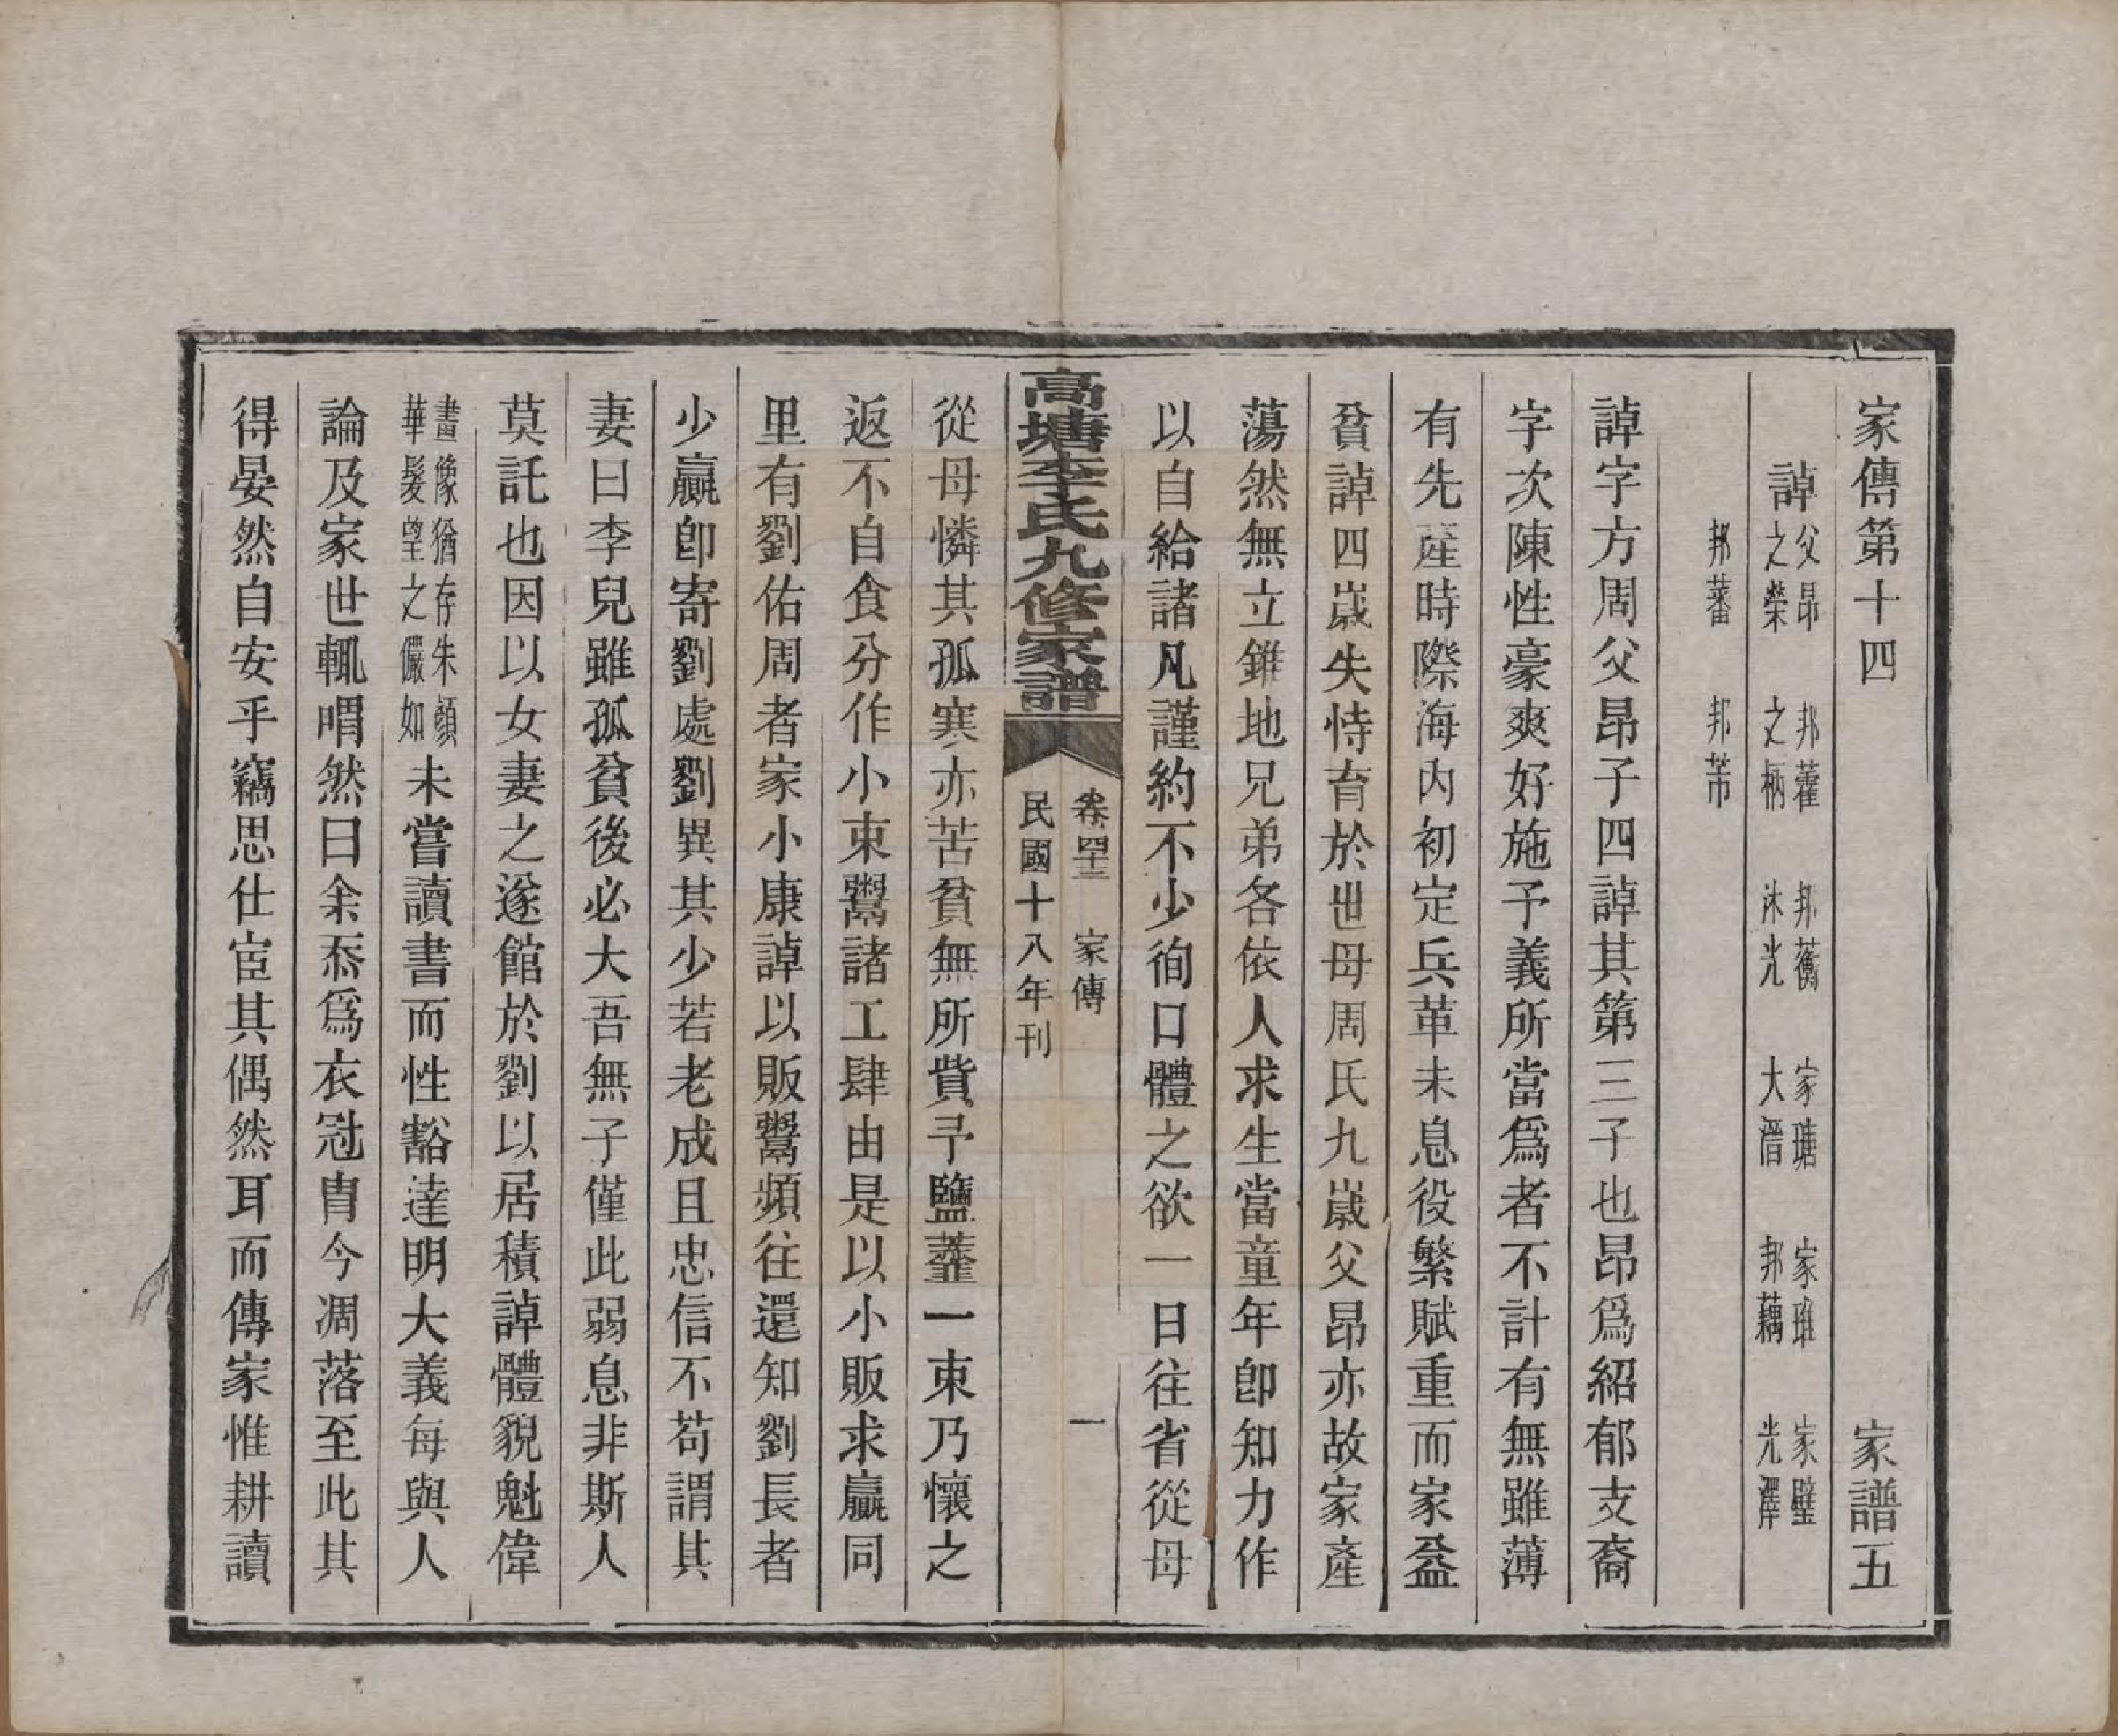 家傳第十四 家譜五
諱 父昂 邦藿 邦蘅 家瑭 家琟 家璧
之榮 之柄 沐光 大濳 邦藕 光澤
邦蕃 邦芾
諱字方周父昂子四諱其第三子也昂爲紹郁支裔
字次陳性豪爽好施予義所當爲者不計有無雖薄
有先產時際海內初定兵革未息役繁賦重而家益
貧諱四歲失恃育於世母周氏九歲父昂亦故家產
蕩然無立錐地兄弟各依人求生當童年卽知力作
以自給諸凡謹約不少徇口體之欲一日往省從母
高塘李氏九修家譜 卷四十三 家傳 一
民國十八年刊
從母憐其孤寒亦苦貧無所貲予鹽虀一束乃懷之
返不自食分作小束鬻諸工肆由是以小販求贏同
里有劉佑周者家小康諱以販鬻頻往還知劉長者
少贏卽寄劉處劉異其少若老成且忠信不苟謂其
妻曰李兒雖孤貧後必大吾無子僅此弱息非斯人
莫託也因以女妻之遂館於劉以居積諱體貌魁偉
畫像猶存朱顏
華髮望之儼如
未嘗讀書而性豁達明大義每與人
論及家世輒喟然曰余忝爲衣冠胄今凋落至此其
得晏然自安乎竊思仕宦其偶然耳而傳家惟耕讀